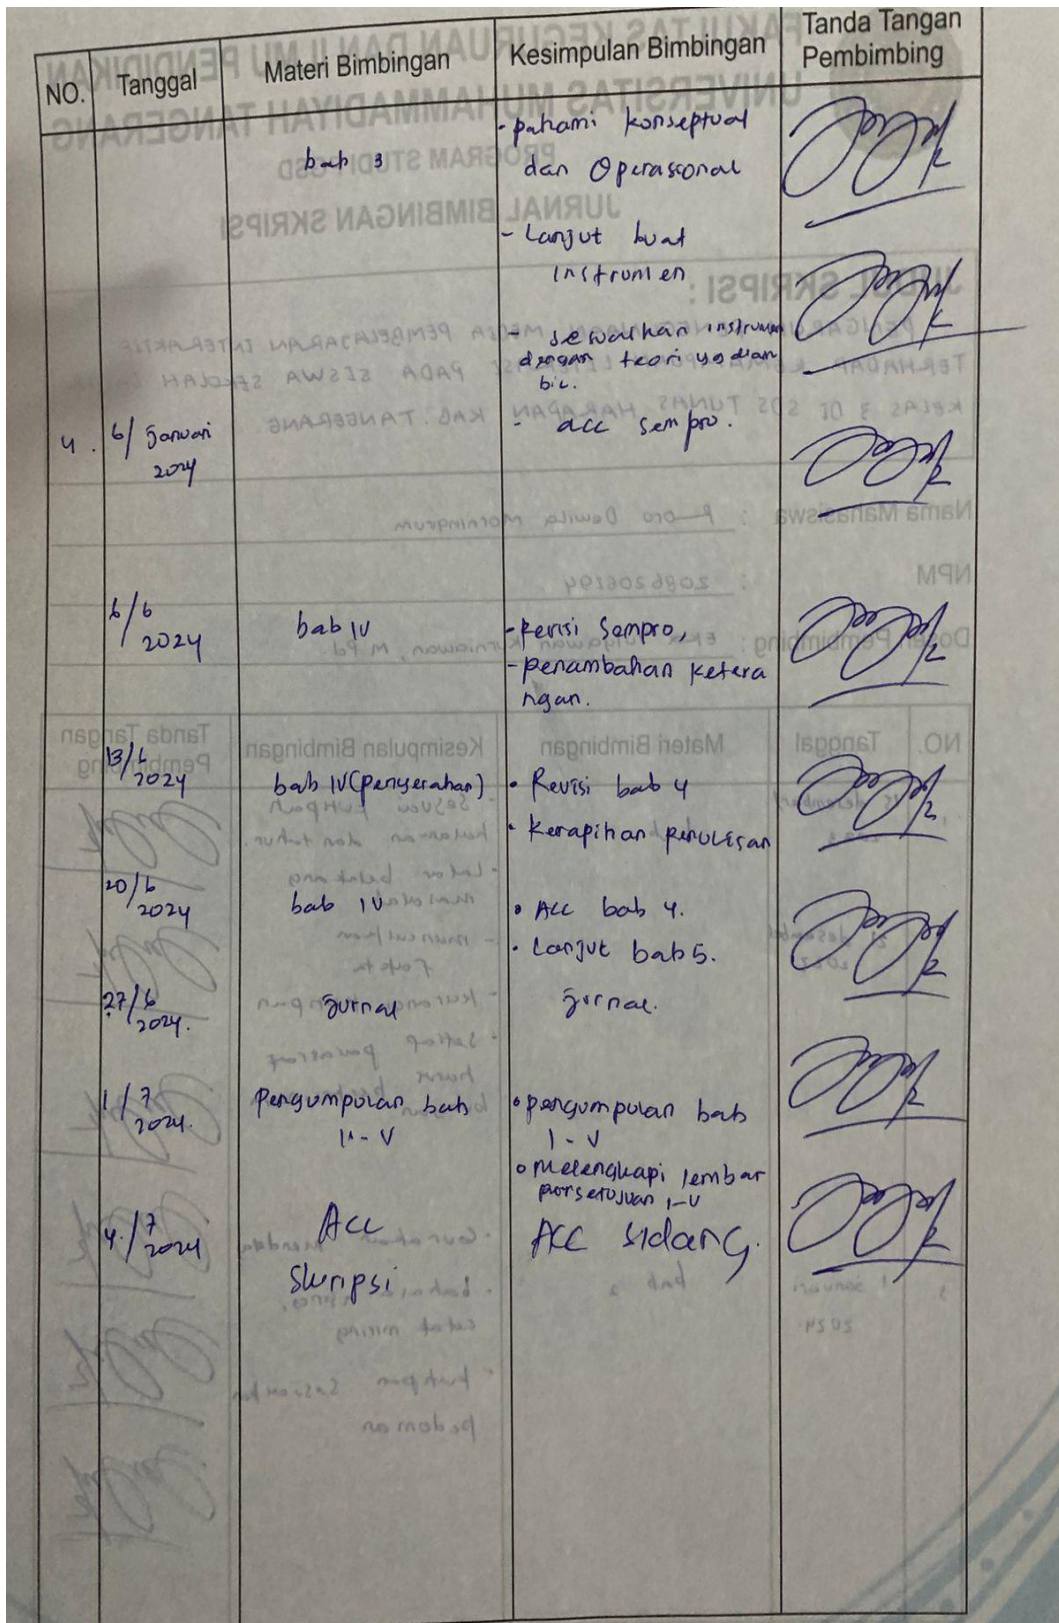 NO.
Tanggal
Materi Bimbingan
Kesimpulan Bimbingan
Tanda Tangan
Pembimbing
bab 3
- pahami konseptual
dan Operasional
- Lanjut buat
instrumen
- sesuaikan instrumen
dengan teori yg diam
bil.
4.
6/ Januari
2024
- acc sempro.
6/6
2024
bab IV
- Revisi Sempro,
- penambahan ketera
ngan.
13/6
2024
bab IV (penyerahan)
• Revisi bab 4
• Kerapihan penulisan
20/6
2024
bab IV
• Acc bab 4.
• Lanjut bab 5.
27/6
2024.
Jurnal
Jurnal.
1/7
2024.
Pengumpulan bab
I - V
• pengumpulan bab
I - V
• Melengkapi lembar
persetujuan I-V
4/7
2024
Acc
Skripsi
Acc sidang.